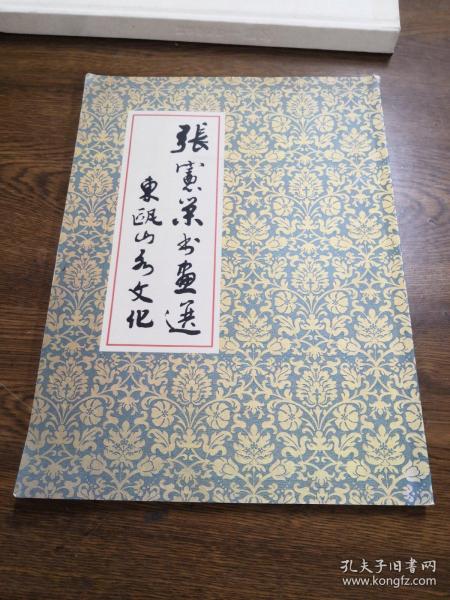 張憲榮书畫選
東甌山水文化
孔夫子旧书网
www.kongfz.com